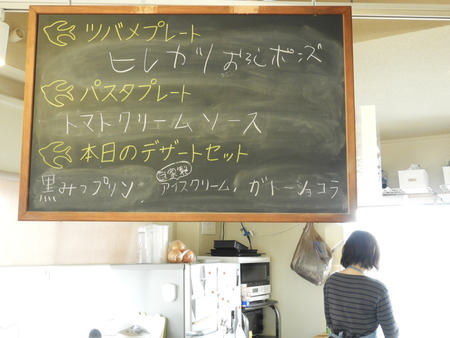 ツバメプレート
ヒレカツ おろしポンズ
パスタプレート
トマトクリームソース
本日のデザートセット
自家製
黒みつプリン、アイスクリーム、ガトーショコラ